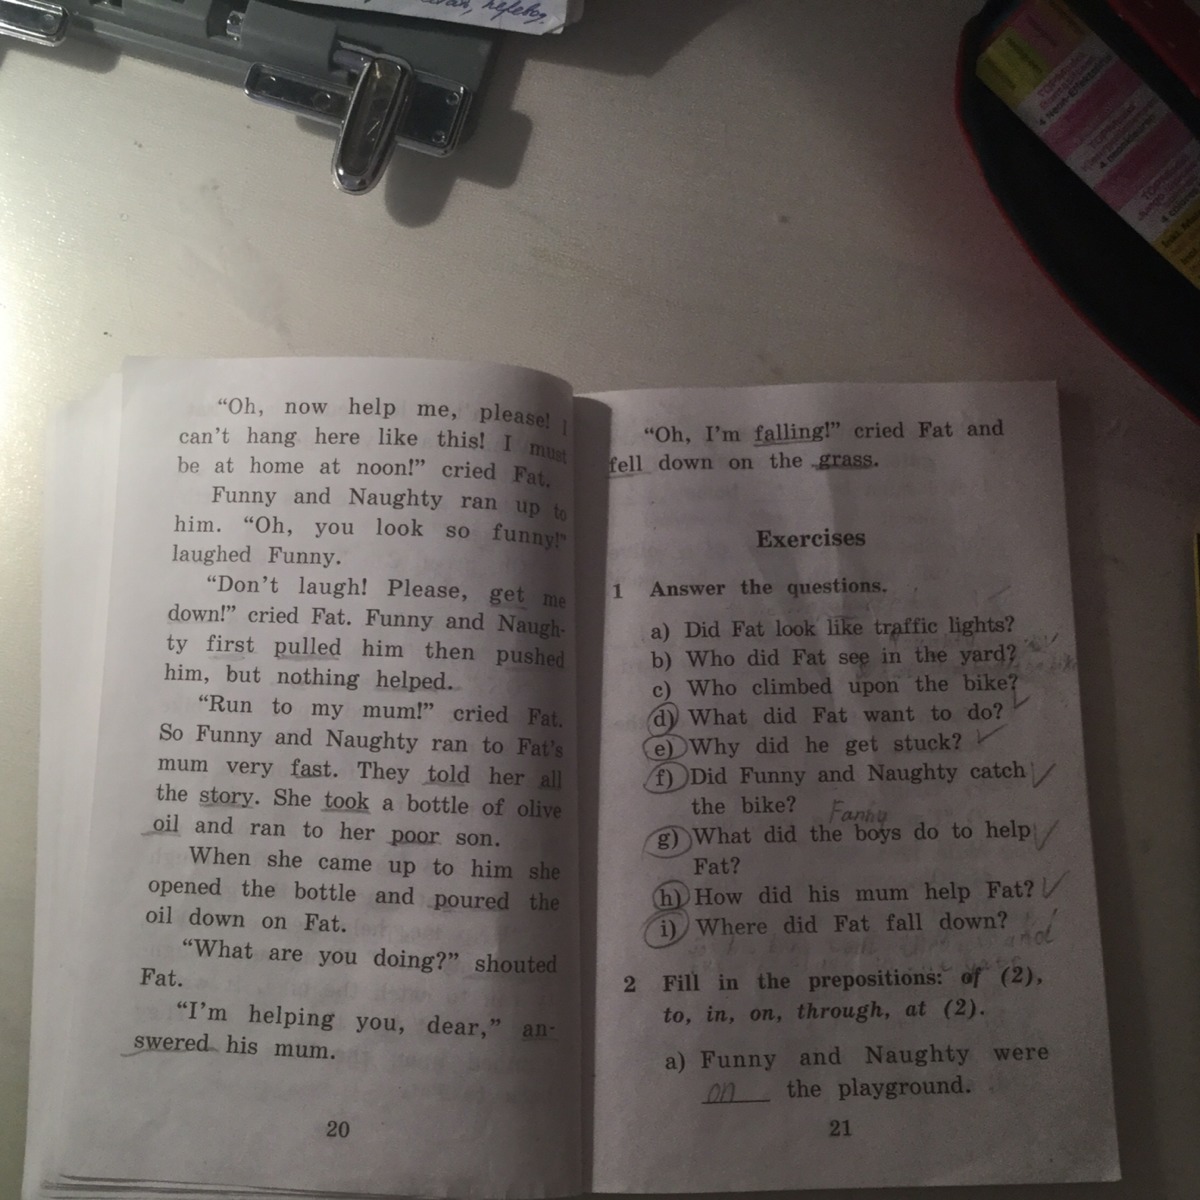 "Oh, now help me, please! I
can't hang here like this! I must
be at home at noon!" cried Fat.
Funny and Naughty ran up to
him. "Oh, you look so funny!"
laughed Funny.
"Don't laugh! Please, get me
down!" cried Fat. Funny and Naugh-
ty first pulled him then pushed
him, but nothing helped.
"Run to my mum!" cried Fat.
So Funny and Naughty ran to Fat's
mum very fast. They told her all
the story. She took a bottle of olive
oil and ran to her poor son.
When she came up to him she
opened the bottle and poured the
oil down on Fat.
"What are you doing?" shouted
Fat.
"I'm helping you, dear," an-
swered his mum.
20
"Oh, I'm falling!" cried Fat and
fell down on the grass.
Exercises
1 Answer the questions.
a) Did Fat look like traffic lights?
b) Who did Fat see in the yard?
c) Who climbed upon the bike?
d) What did Fat want to do?
e) Why did he get stuck?
f) Did Funny and Naughty catch
the bike?
Fanny
g) What did the boys do to help
Fat?
h) How did his mum help Fat?
i) Where did Fat fall down?
and
2 Fill in the prepositions: of (2),
to, in, on, through, at (2).
a) Funny and Naughty were
on the playground.
21